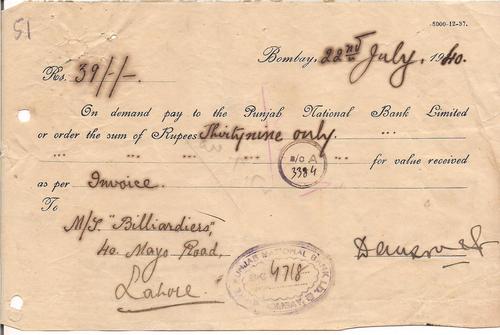 51
5000-12-37.
Bombay, 22nd July, 1940.
Rs. 39/-/-.
On demand pay to the Punjab National Bank Limited
or order the sum of Rupees Thirtynine only. "
" " " " " for value received
B/C A
3384
as per Invoice.
To
M/S. "Billiardiers",
40. Mayo Road,
Lahore.
PUNJAB NATIONAL BANK LTD.
4718